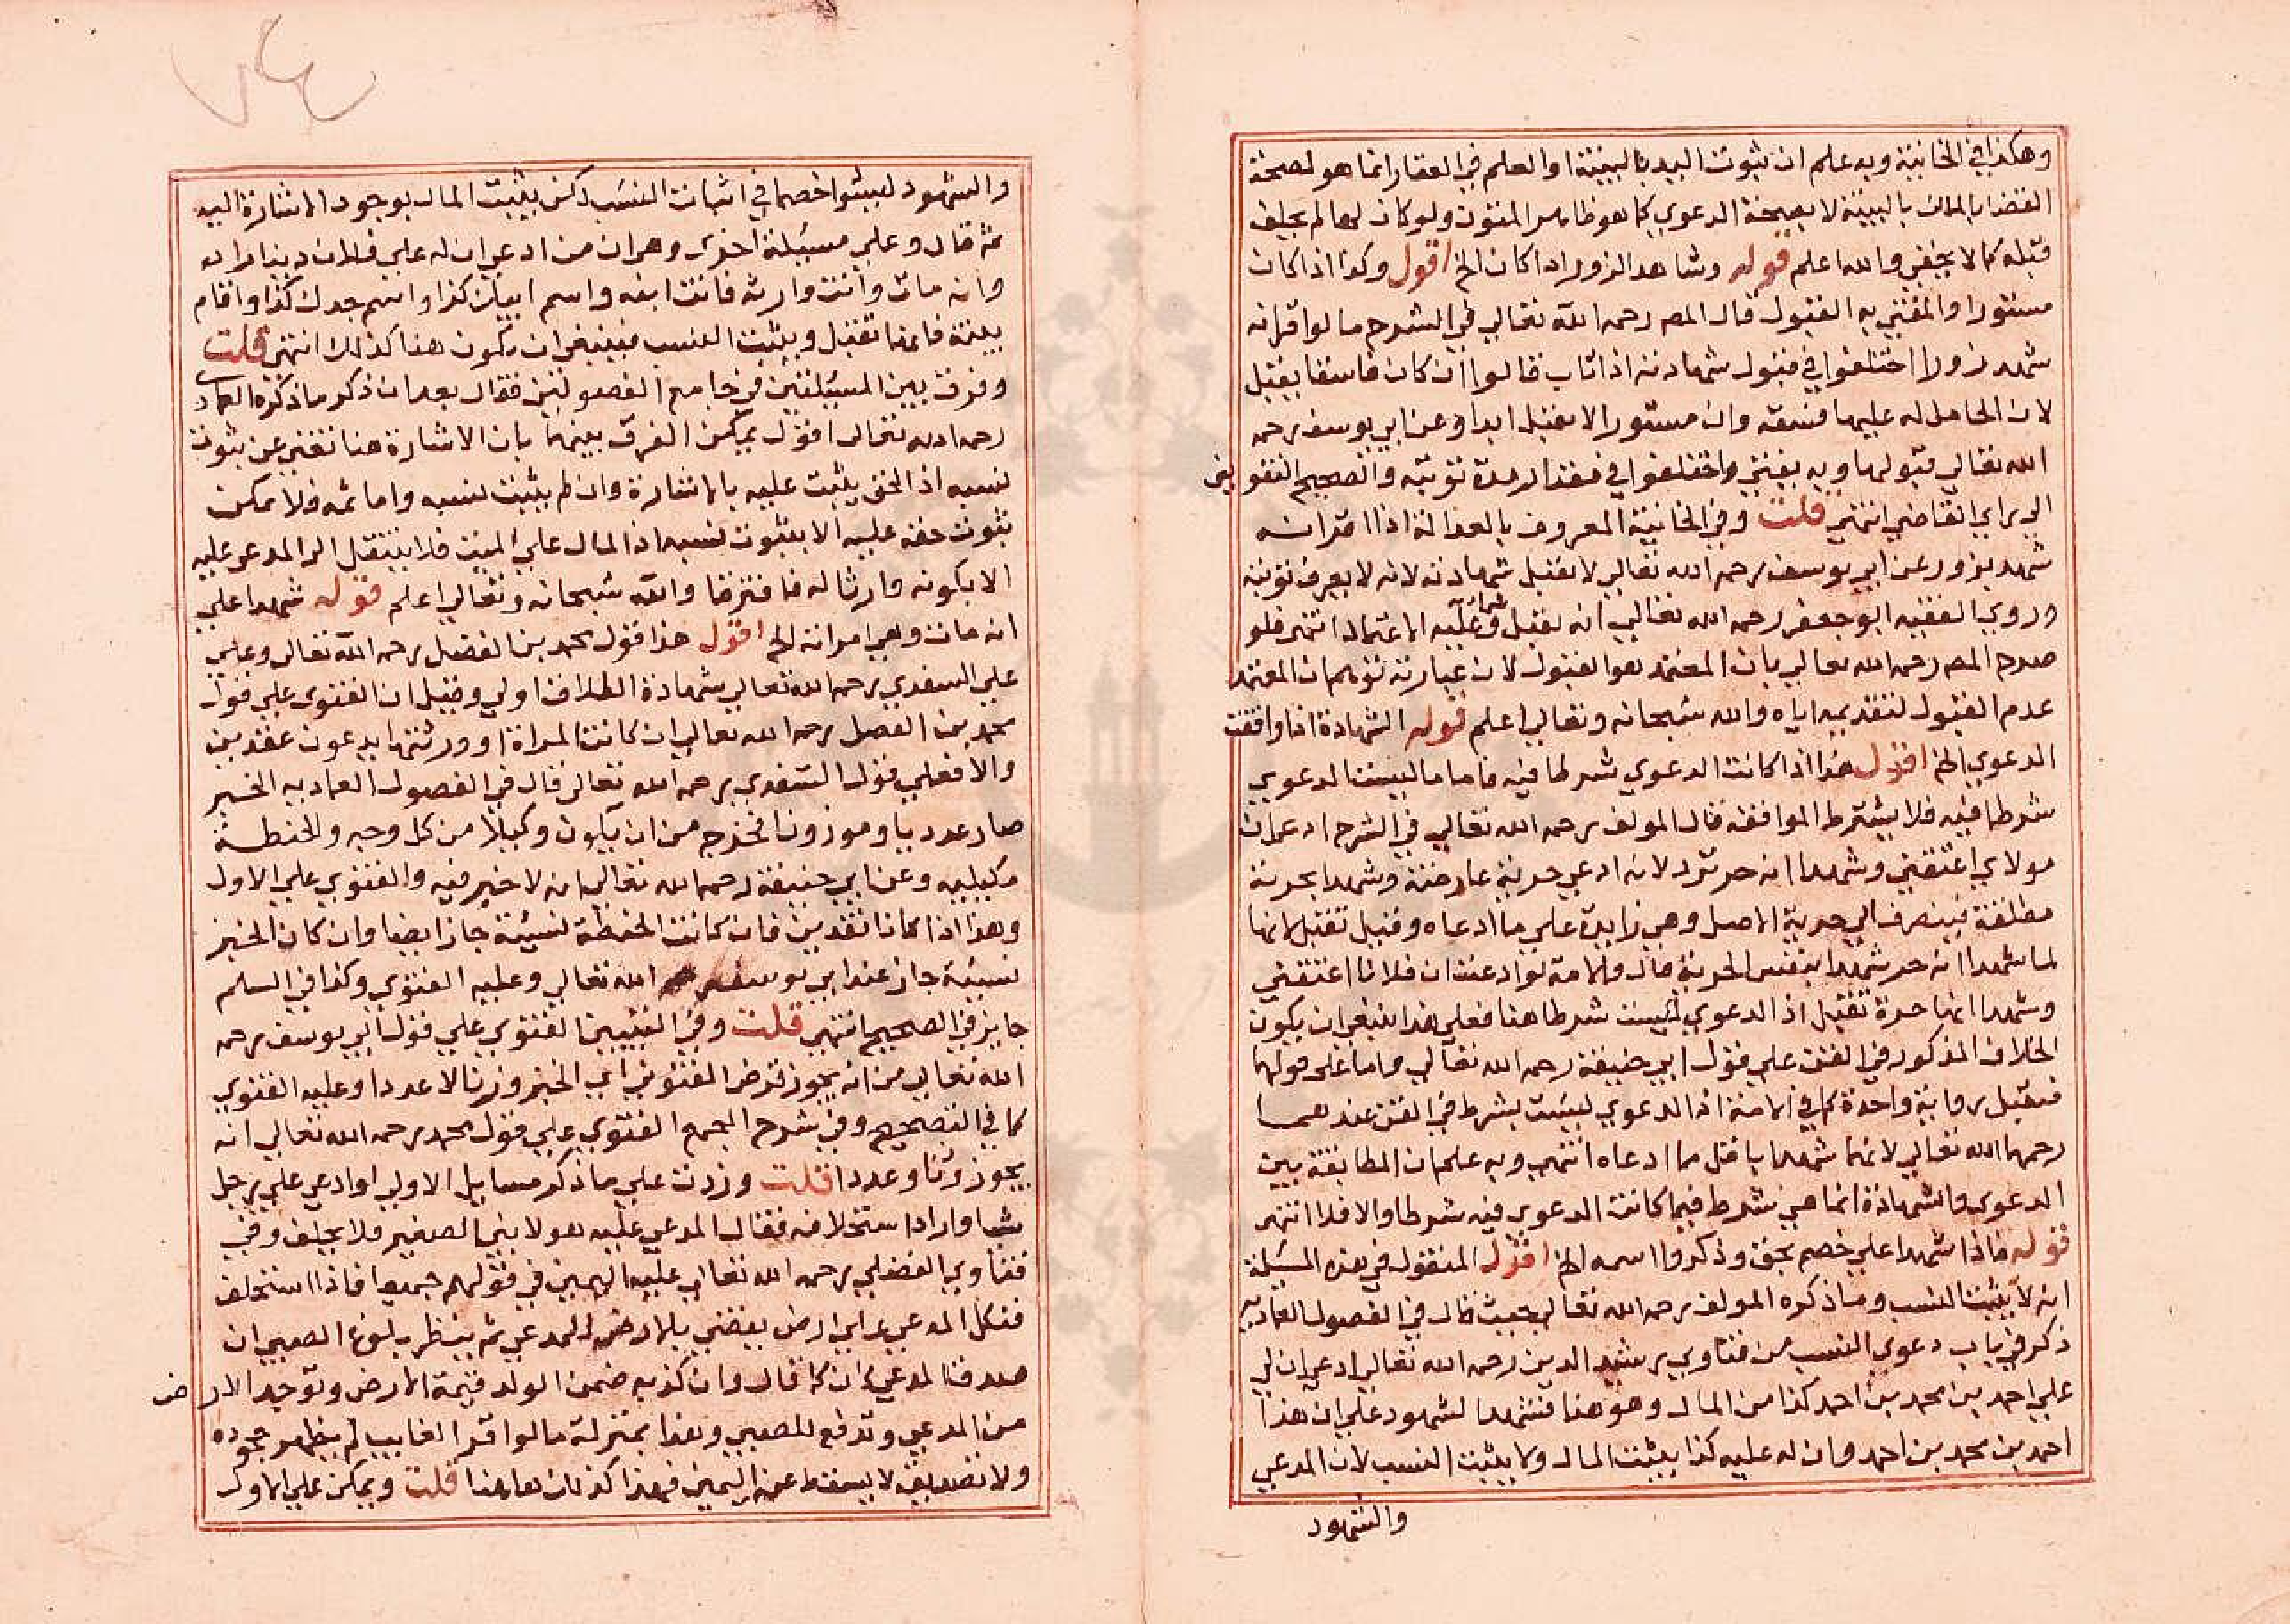 وهكذا في الخانية وبه علم ان ثبوت اليد بالبينة او العلم في العقار انما هو لصحة
القضا بالملك بالبينة لا بصحة الدعوي كما هو ظاهر المتون ولو كان لهما لم يحلف
قبله كما لا يخفي والله اعلم قوله وشاهد الزور اذا كان الخ اقول وكذا اذا كان
مستورا والمفتي به القبول قال المص رحمه الله تعالي في الشرح ما لو اقر انه
شهد زورا اختلفوا في قبول شهادته اذا تاب قالوا ان كان فاسقا يقبل
لان الحامل له عليها فسقه وان مستورا لا يقبل ابدا وعن ابي يوسف رحمه
الله تعالي قبولها وبه يفتي واختلفوا في مقدار مدة توبته والصحيح التفويض
الي راي القاضي انتهي قلت وفي الخانية المعروف بالعدالة اذا اقر انه
شهد بزور عن ابي يوسف رحمه الله تعالي لا تقبل شهادته لانه لا يعرف توبته
وروي الفقيه ابو جعفر رحمه الله تعالي انه تقبل شهادته وعليه الاعتماد انتهي فلو
صرح المص رحمه الله تعالي بان المعتمد هو القبول لان عبارته توهم ان المعتمد
عدم القبول لتقديمه اياه والله سبحانه وتعالي اعلم قوله الشهادة اذا وافقت
الدعوي الخ اقول هذا اذا كانت الدعوي شرطا فيه فاما ما ليست الدعوي
شرطا فيه فلا يشترط الموافقة قال المولف رحمه الله تعالي في الشرح ادعي ان
مولاي اعتقني وشهدا انه حر ترد لانه ادعي حرية عارضة وشهدا بحرية
مطلقة فينصرف الي حرية الاصل وهي زايدة علي ما ادعاه وقيل تقبل لانها
لما شهدا انه حر شهدا بنفس الحرية قال والامة لو ادعت ان فلانا اعتقني
وشهدا انها حرة تقبل اذ الدعوي ليست شرطا هنا فعلي هذا ينبغي ان يكون
الخلاف المذكور في القن علي قول ابي حنيفة رحمه الله تعالي واما علي قولهما
فتقبل رواية واحدة كما في الامة اذ الدعوي ليست بشرط في القن عندهما
رحمهما الله تعالي لانهما شهدا باقل مما ادعاه انتهي وبه علم ان المطابقة بين
الدعوي والشهادة انما هي شرط فيما كانت الدعوي فيه شرطا والا فلا انتهي
قوله فاذا شهدا علي خصم بحق وذكروا اسمه الخ اقول المنقول في هذه المسئلة
انه لا يثبت النسب وما ذكره المولف رحمه الله تعالي بحث قال في الفصول العمادية
ذكر في باب دعوي النسب من فتاوي رشيد الدين رحمه الله تعالي ادعي ان لي
علي احمد بن محمد بن احمد كذا من المال وهو هنا فشهد الشهود علي ان هذا
احمد بن محمد بن احمد وان له عليه كذا يثبت المال ولا يثبت النسب لان المدعي
والشهود
والشهود ليسوا خصما في اثبات النسب لكن يثبت المال بوجود الاشارة اليه
ثم قال وعلي مسئلة اخري وهي ان من ادعي ان له علي فلان دينارا له
وانه مات وانت وارثه فانت ابنه واسم ابيك كذا واسم جدك كذا واقام
بينة فانها تقبل ويثبت النسب فينبغي ان يكون هنا كذلك انتهي قلت
وفرق بين المسئلتين في جامع الفصولين فقال بعد ان ذكر ما ذكره العماد
رحمه الله تعالي اقول يمكن الفرق بينهما بان الاشارة هنا تغني عن ثبوت
نسبه اذ الحق يثبت عليه بالاشارة وان لم يثبت نسبه واما ثمه فلا يمكن
ثبوت حقه عليه الا بثبوت نسبه اذ المال علي الميت فلا ينتقل الي المدعي عليه
الا بكونه وارثا له فافترقا والله سبحانه وتعالي اعلم قوله شهدا علي
انه مات وهي امراته الخ اقول هذا قول محمد بن الفضل رحمه الله تعالي وعلي
علي السغدي رحمه الله تعالي شهادة الطلاق اولي وقيل ان الفتوي علي قول
محمد بن الفضل رحمه الله تعالي ان كانت المراة او ورثتها يدعون عقدين
والا فعلي قول السغدي رحمه الله تعالي قال في الفصول العمادية الخبز
صار عدديا وموزونا فخرج من ان يكون وكيلا من كل وجه والحنطة
مكيلة وعن ابي حنيفة رحمه الله تعالي انه لا خير فيه والفتوي علي الاول
وهذا اذا كانا نقدين فان كانت الحنطة نسيئة جاز ايضا وان كان الخبز
نسيئة جاز عند ابي يوسف رحمه الله تعالي وعليه الفتوي وكذا في السلم
جايز في الصحيح انتهي قلت وفي التبيين الفتوي علي قول ابي يوسف رحمه
الله تعالي من انه يجوز قرض الفتوي اي الخبز وزنا لا عددا وعليه الفتوي
كما في التصحيح وفي شرح المجمع الفتوي علي قول محمد رحمه الله تعالي انه
يجوز وزنا وعددا قلت وزدت علي ما ذكر مسايل الاولي لو ادعي علي رجل
شيا واراد استحلافه فقال المدعي عليه هو لابني الصغير فلا يحلف وفي
فتاوي الفضلي رحمه الله تعالي عليه اليمين في قولهم جميعا فاذا استحلف
فنكل المدعي علي ارض يقضي بالارض للمدعي ثم ينظر بلوغ الصبي ان
صدق المدعي كان كما قال وان كذبه ضمن الوالد قيمة الارض وتوخذ الارض
من المدعي وتدفع للصبي وهذا بمنزلة ما لو اقر الغايب لم يظهر جحوده
ولا تصديقه لا يسقط عنه اليمين فهذا كذلك هاهنا قلت ويمكن علي الاول